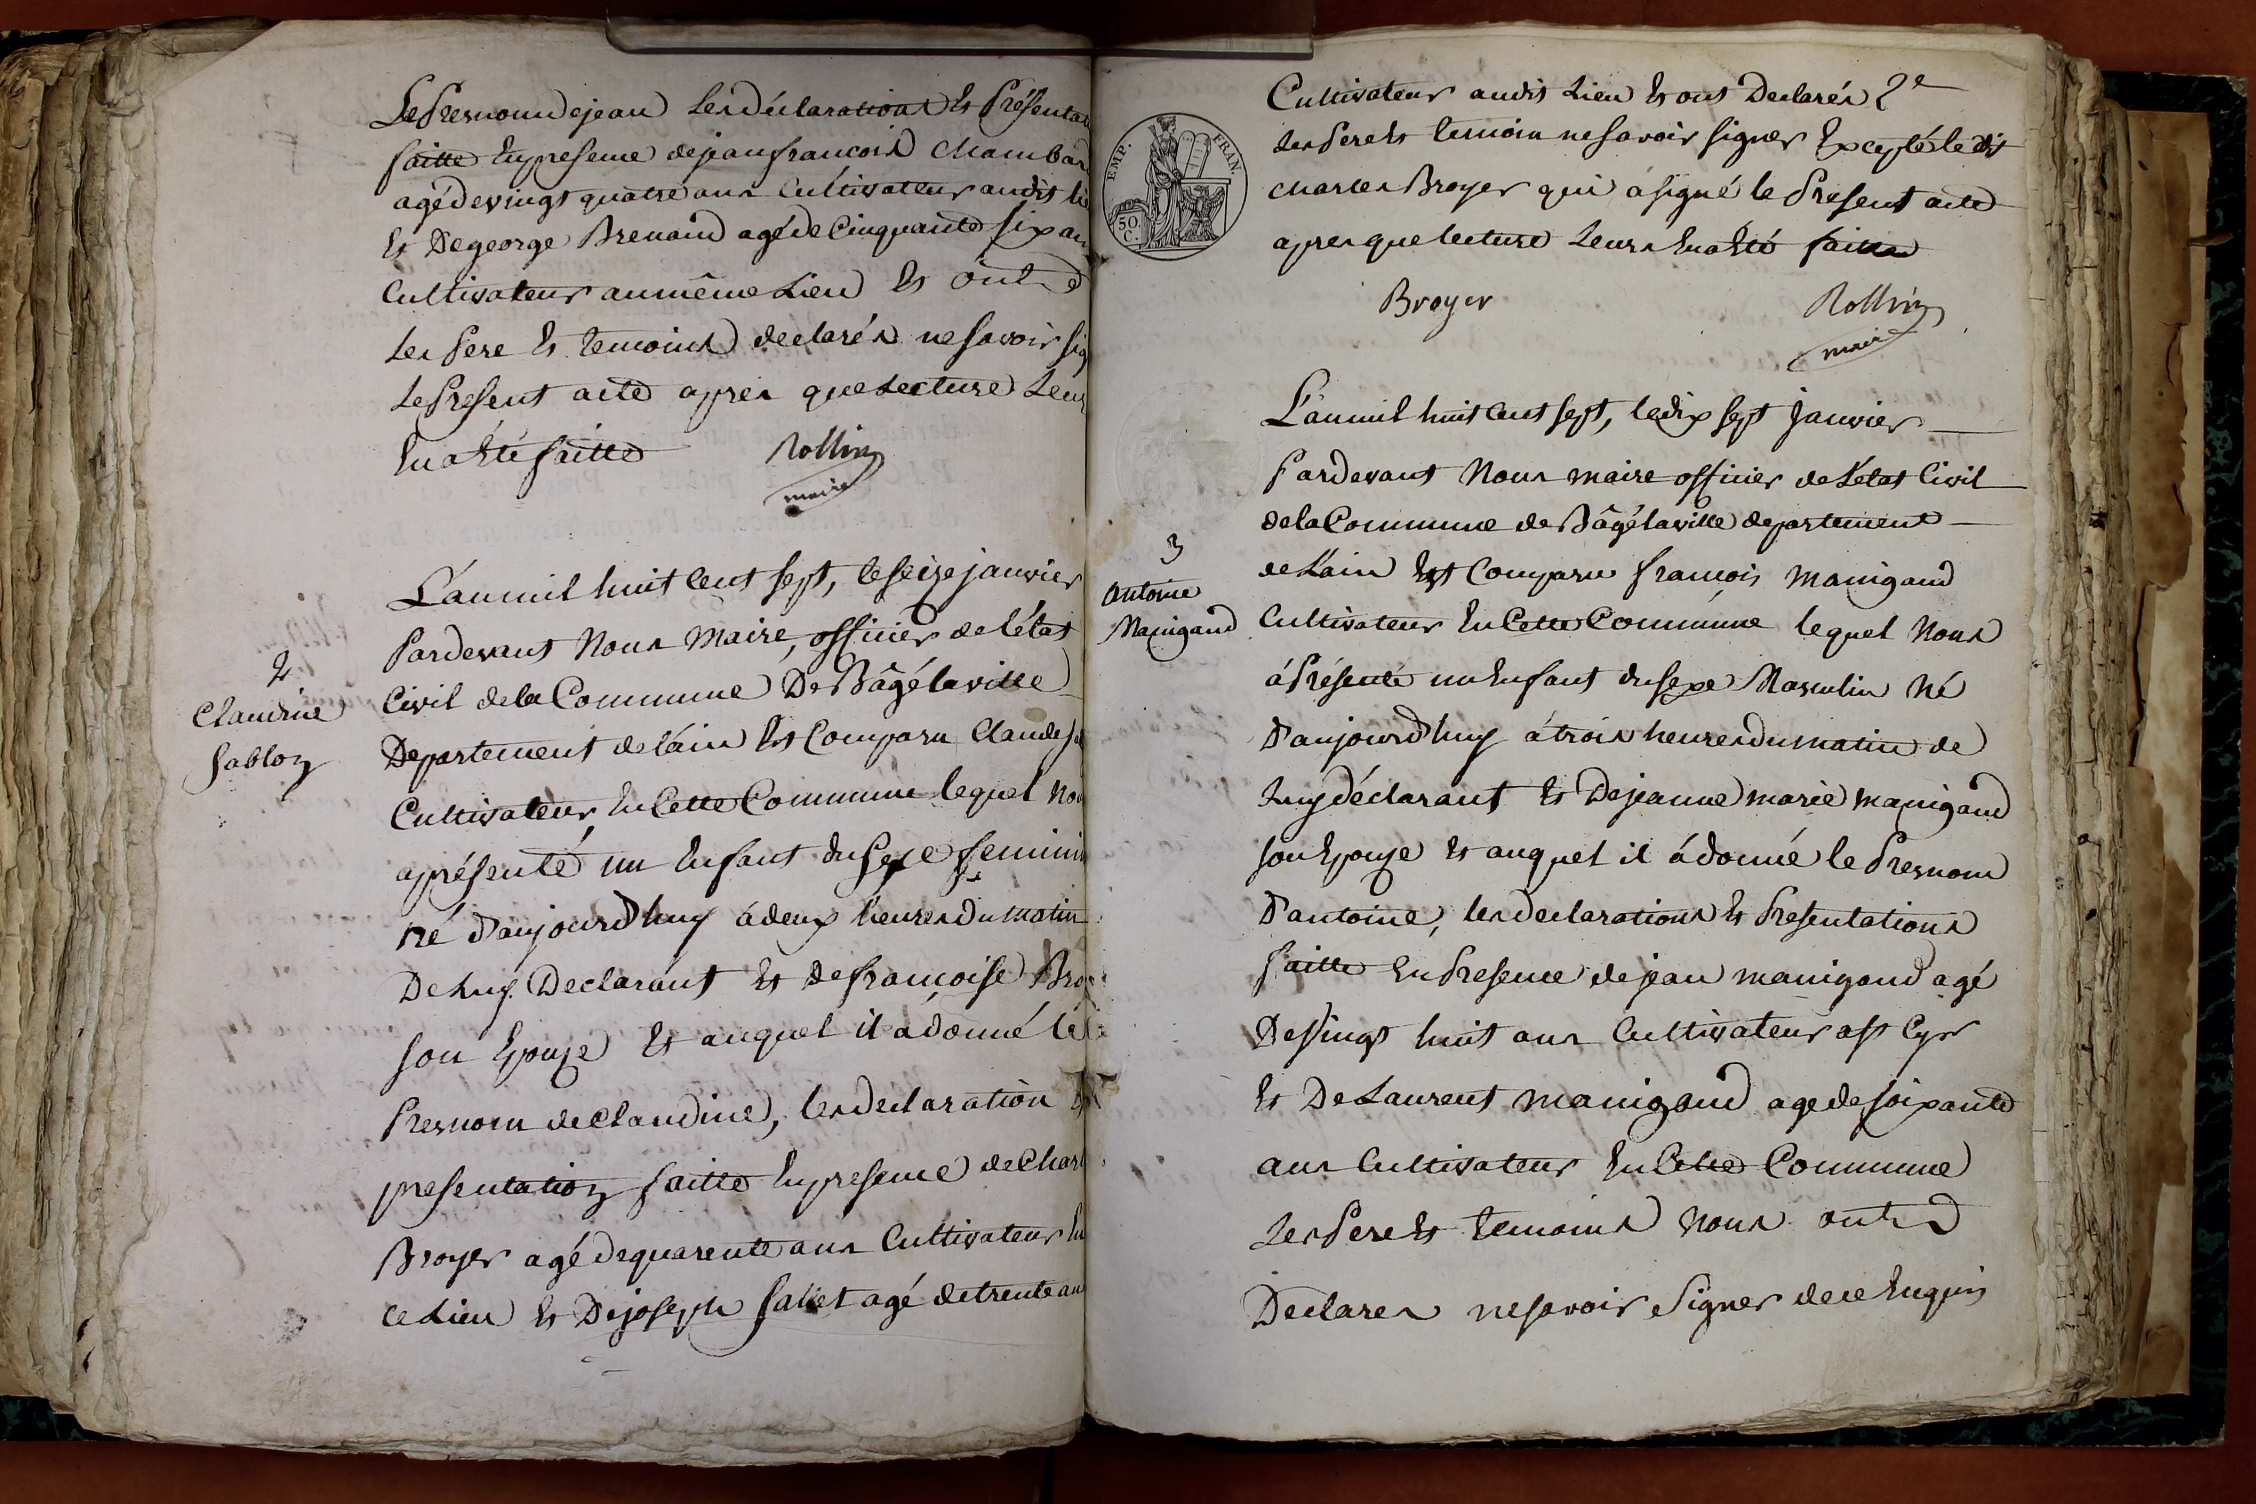 Le Presnom dejean les déclarations Et Présentat
faitte En presence dejean francois Chambar
agé de vingt quatre ans Cultivateur audit li
Et De george Brenaud agé de Cinquante six an
Cultivateur au même Lieu Et ont
Les Pere Et temoins declarés ne savoir sig
Le Present acte apres que Lecture Leur
En a Eté faitte Rollin
maire
L'an mil huit Cent sept, le seize janvier
Pardevant Nous Maire, officier de l'état
2
Claudine
Sablon
Civil de la Commune De Bâgélaville
Departement de l'ain Est Comparu Claude Sa
Cultivateur En Cette Commune lequel Nou
a présenté un Enfant du Sexe feminin
né d'aujourd'huy à deux heures du matin
De Luy Declarant Et de françoise Bro
son Epouse Et auquel il a donné le
Presnom de Claudine, les declaration Et
presentation faitte En presence de Charl
Broyer agé de quarente ans Cultivateur En
ce Lieu Et De joseph Sallet agé de trente ans
EMP. FRAN.
50 C.
Cultivateur audit Lieu Et ont Declarés 2e
Les Pere Et temoin ne savoir signer Excepté le dit
Charles Broyer qui a signé le Present acte
apres que lecture Leurs En a Eté faitte
Broyer Rollin
maire
L'an mil huit Cent sept, le dix sept Janvier
Pardevant Nous maire officier de L'état Civil
de la Commune de Bâgélaville departement
3
Antoine
Manigand
de L'ain Est Comparu françois Manigand
Cultivateur En Cette Commune lequel Nous
à Présenté un Enfant du sexe Masculin Né
D'aujourd'huy à trois heures du matin de
Luy déclarant Et De jeanne marie manigand
son Epouse Et auquel il à donné le Presnom
D'antoine, les declarations Et Presentations
faitte En Presence de jean manigand agé
De Vingt huit ans Cultivateur a St Cyr
Et De Laurent manigand age de soixante
ans Cultivateur En Cette Commune
Les Pere Et temoins Nous ont
Declares ne savoir Signer de ce Enquis